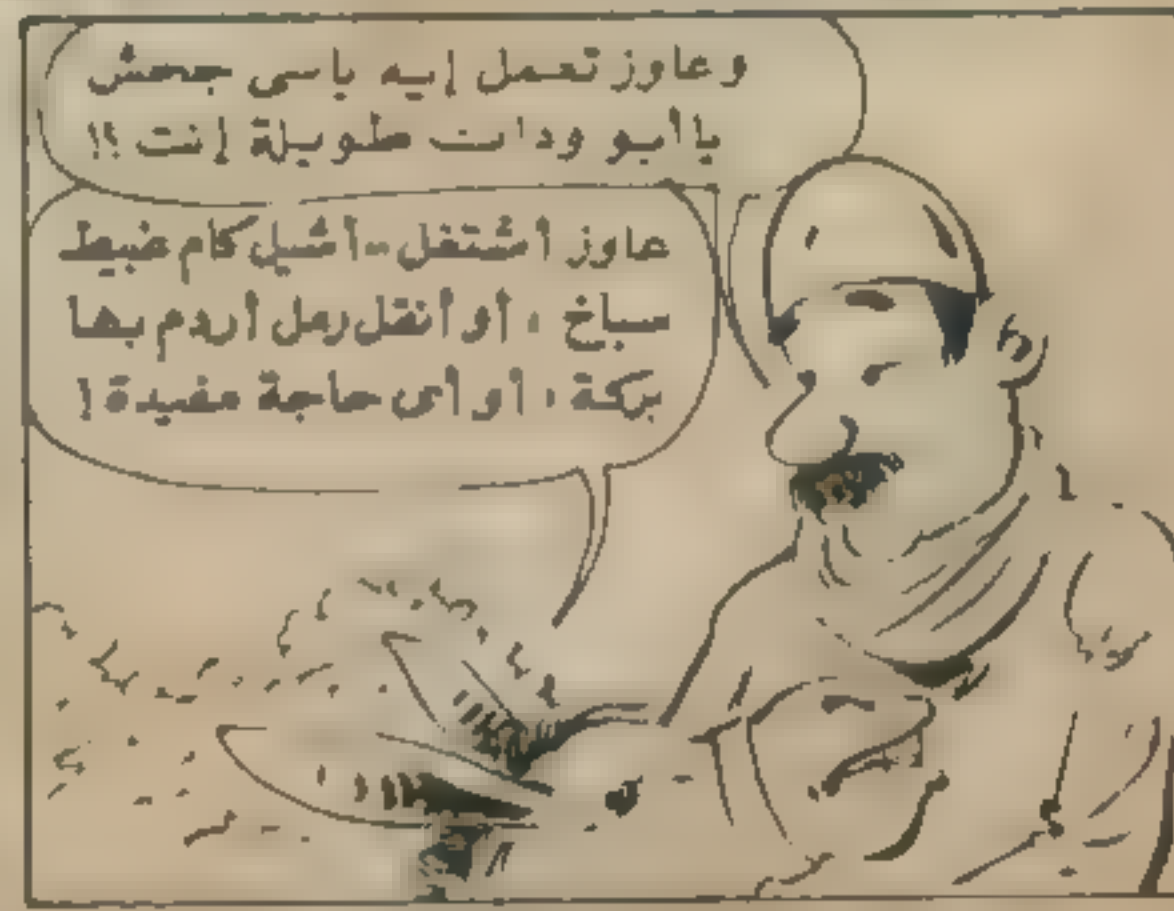 وعاوز تعمل إيه ياسى جحش
يا أبو ودات طويلة إنت ؟!
عاوز أشتغل .. أشيل كام غبيط
سباخ ، أو أنقل رمل أردم بها
بركة ، أو أى حاجة مفيدة !